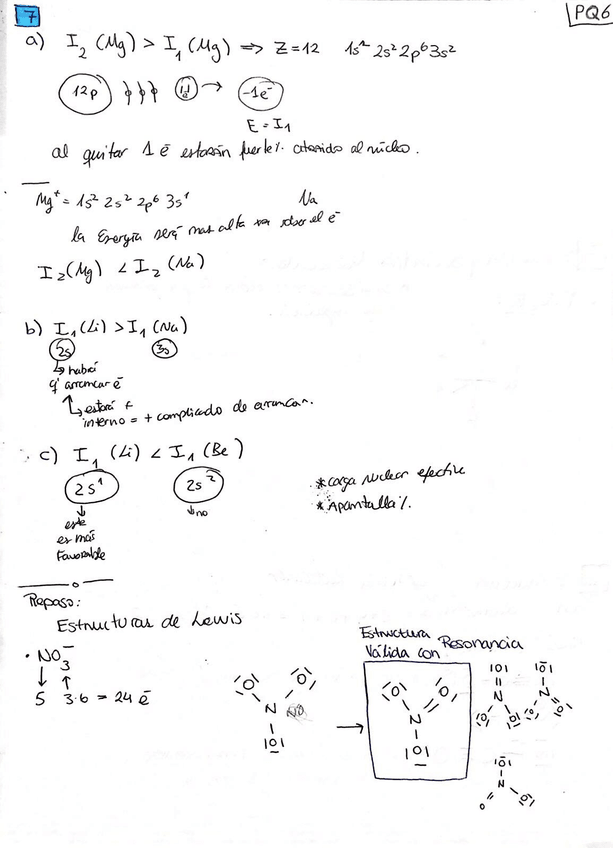 7
PQ6
a) I₂ (Mg) > I₁ (Mg) ⇒ Z=12 1s² 2s² 2p⁶ 3s²
12p 1ē → -1e⁻
E = I₁
al quitar 1 ē estarán fuerte%. atraído al núcleo.
Mg⁺ = 1s² 2s² 2p⁶ 3s¹ Na
la Energía será mas alta el ē
I₂(Mg) < I₂ (Na)
b) I₁ (Li) > I₁ (Na)
2s 3s
↳ habrá
q' arrancar ē
↳ estará +
interno = + complicado de arrancar.
c) I₁ (Li) < I₁ (Be)
2s¹ 2s²
↓ ↓no
este
es más
Favorable
* carga nuclear efectiva
* Apantalla%.
Repaso:
Estructuras de Lewis
• NO₃⁻
↓ ↑
5 3·6 = 24 ē
Estructura
Válida con Resonancia
|O| |O| N |O|
→
|O| O| N |O|
|O| N |O| |O|
|O| N |O| |O|
|O| N O |O|